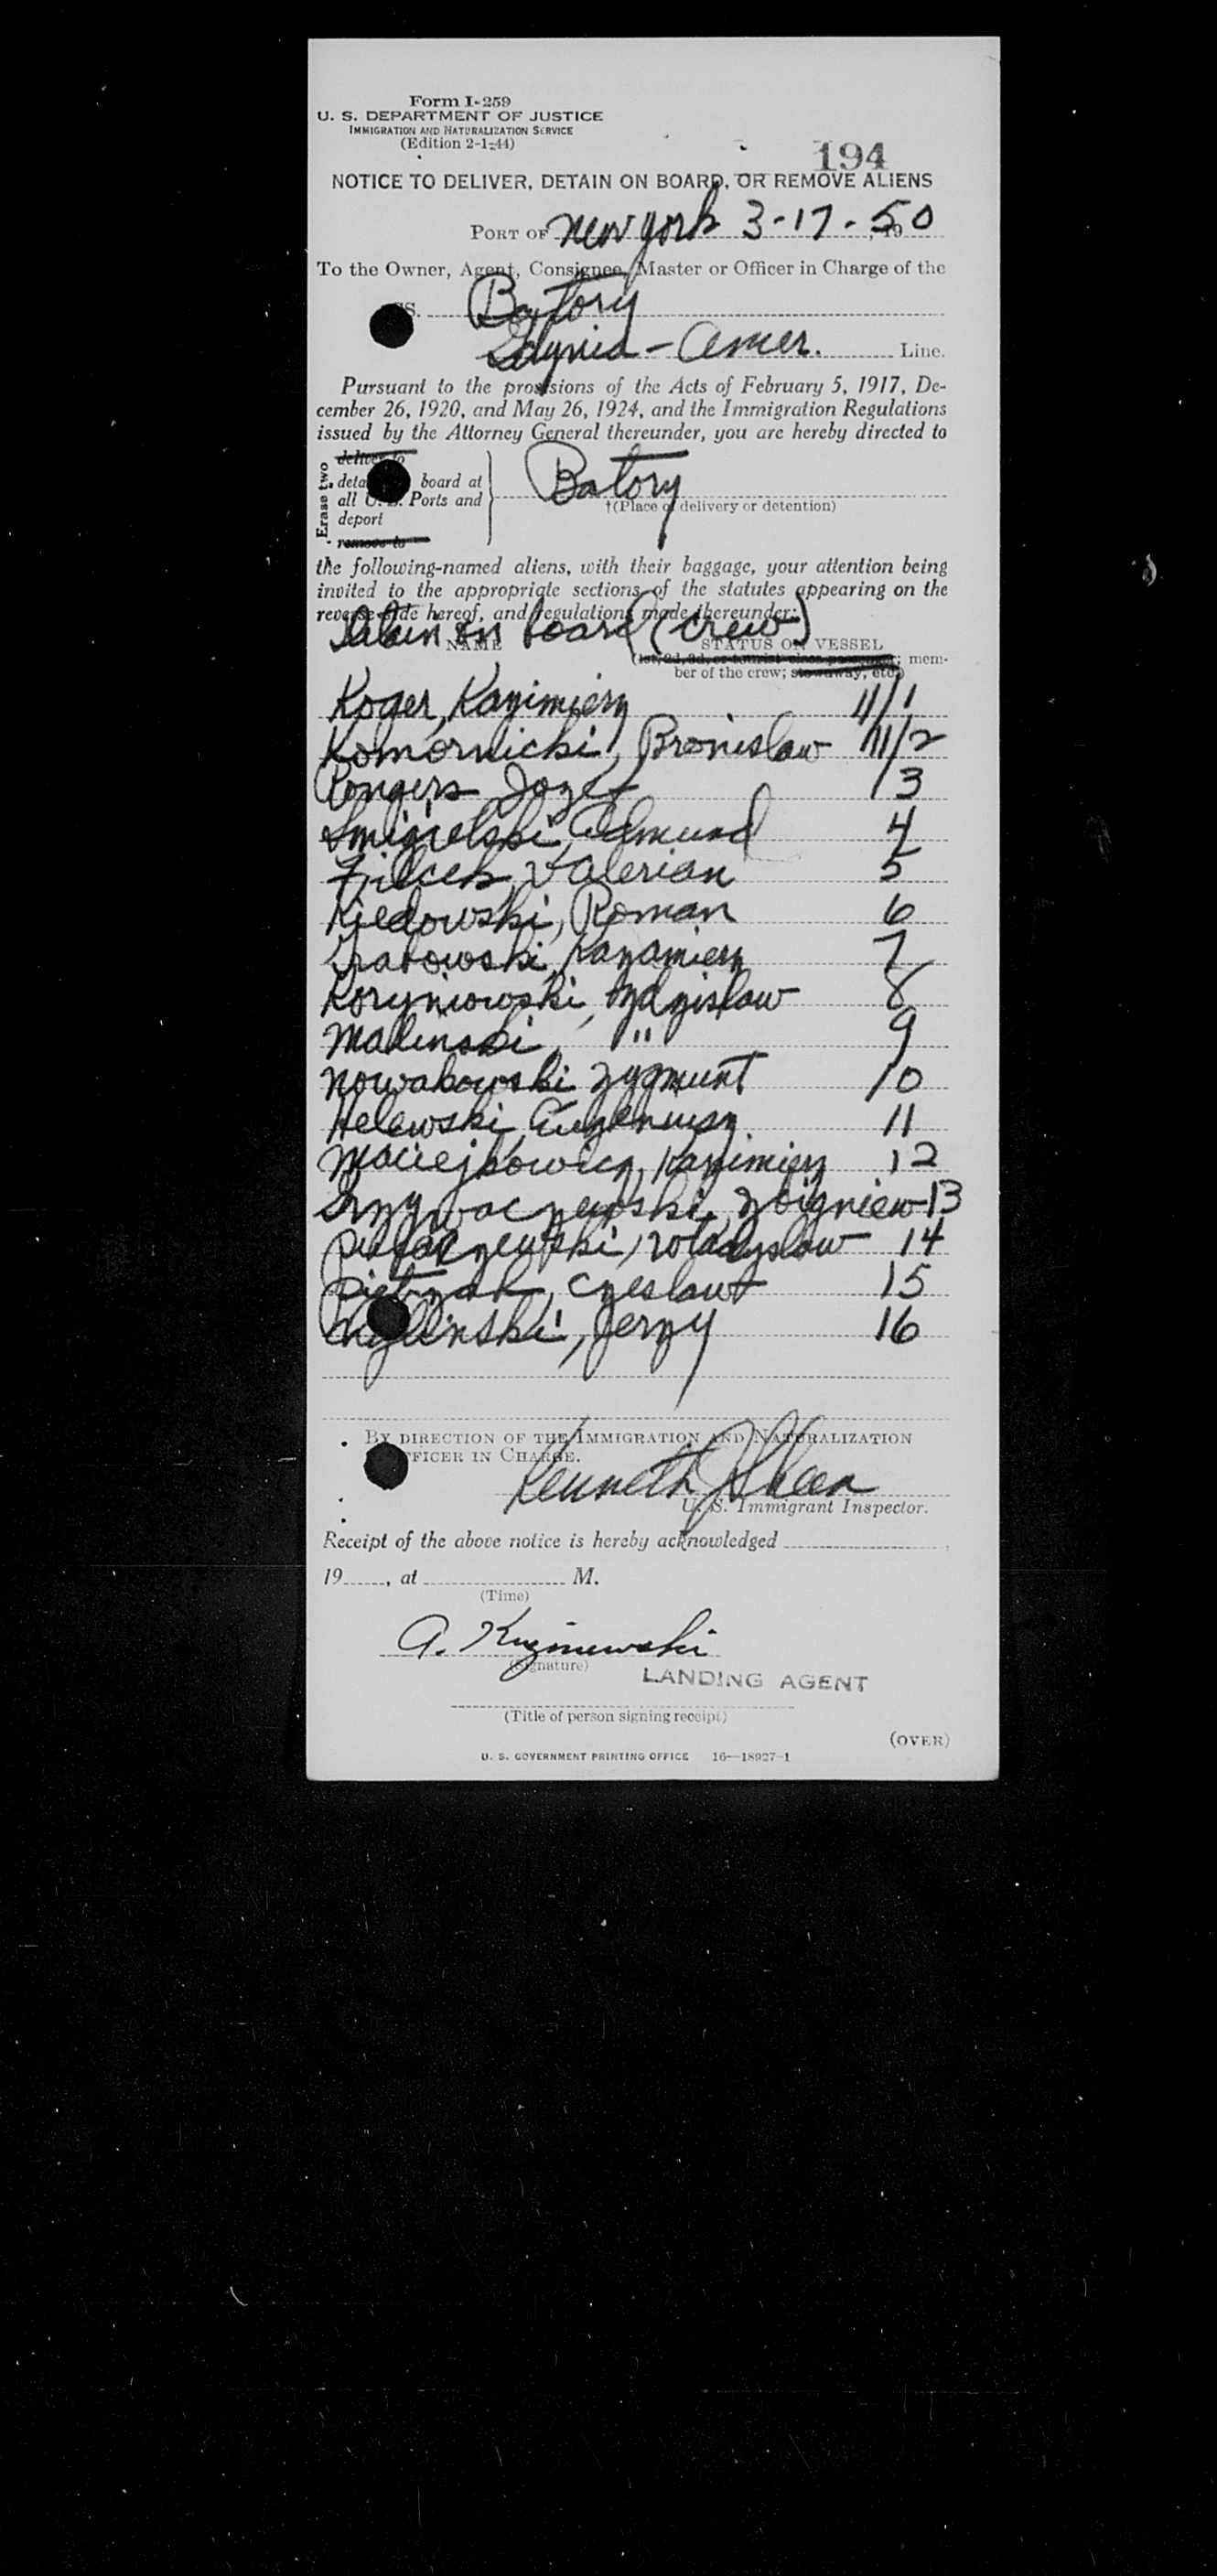 Form I-259
U. S. DEPARTMENT OF JUSTICE
IMMIGRATION AND NATURALIZATION SERVICE
(Edition 2-1-44)
194
NOTICE TO DELIVER, DETAIN ON BOARD, OR REMOVE ALIENS
PORT OF New York 3-17-, 1950
To the Owner, Agent, Consignee, Master or Officer in Charge of the
SS. Batory
Gdynia - Amer. Line.
Pursuant to the provisions of the Acts of February 5, 1917, De-
cember 26, 1920, and May 26, 1924, and the Immigration Regulations
issued by the Attorney General thereunder, you are hereby directed to
Erase two
deliver to
board at
all U. S. Ports and
deport
remove to
Batory
†(Place of delivery or detention)
the following-named aliens, with their baggage, your attention being
invited to the appropriate sections of the statutes appearing on the
reverse side hereof, and regulations made thereunder:
Detain on board (crew)
NAME STATUS ON VESSEL
(1st, 2d, 3d, or tourist class passenger; mem-
ber of the crew; stowaway, etc.)
Koger, Kazimierz 1
Komornicki, Bronislaw 2
Jozef 3
Smigielski, Edmund 4
Valerian 5
Kiedowski, Roman 6
7
8
Malinski, " 9
Nowakowski Zygmunt 10
Helewski, Eugeniusz 11
Maciejkowicz, Kazimierz 12
Zbigniew 13
Wladyslaw 14
Pietrzak, Czeslaw 15
Jerzy 16
BY DIRECTION OF THE IMMIGRATION AND NATURALIZATION
OFFICER IN CHARGE.
Kenneth
U. S. Immigrant Inspector.
Receipt of the above notice is hereby acknowledged
19 , at M.
(Time)
A. Kuzniewski
(Signature)
LANDING AGENT
(Title of person signing receipt)
(OVER)
U. S. GOVERNMENT PRINTING OFFICE 16—18927-1